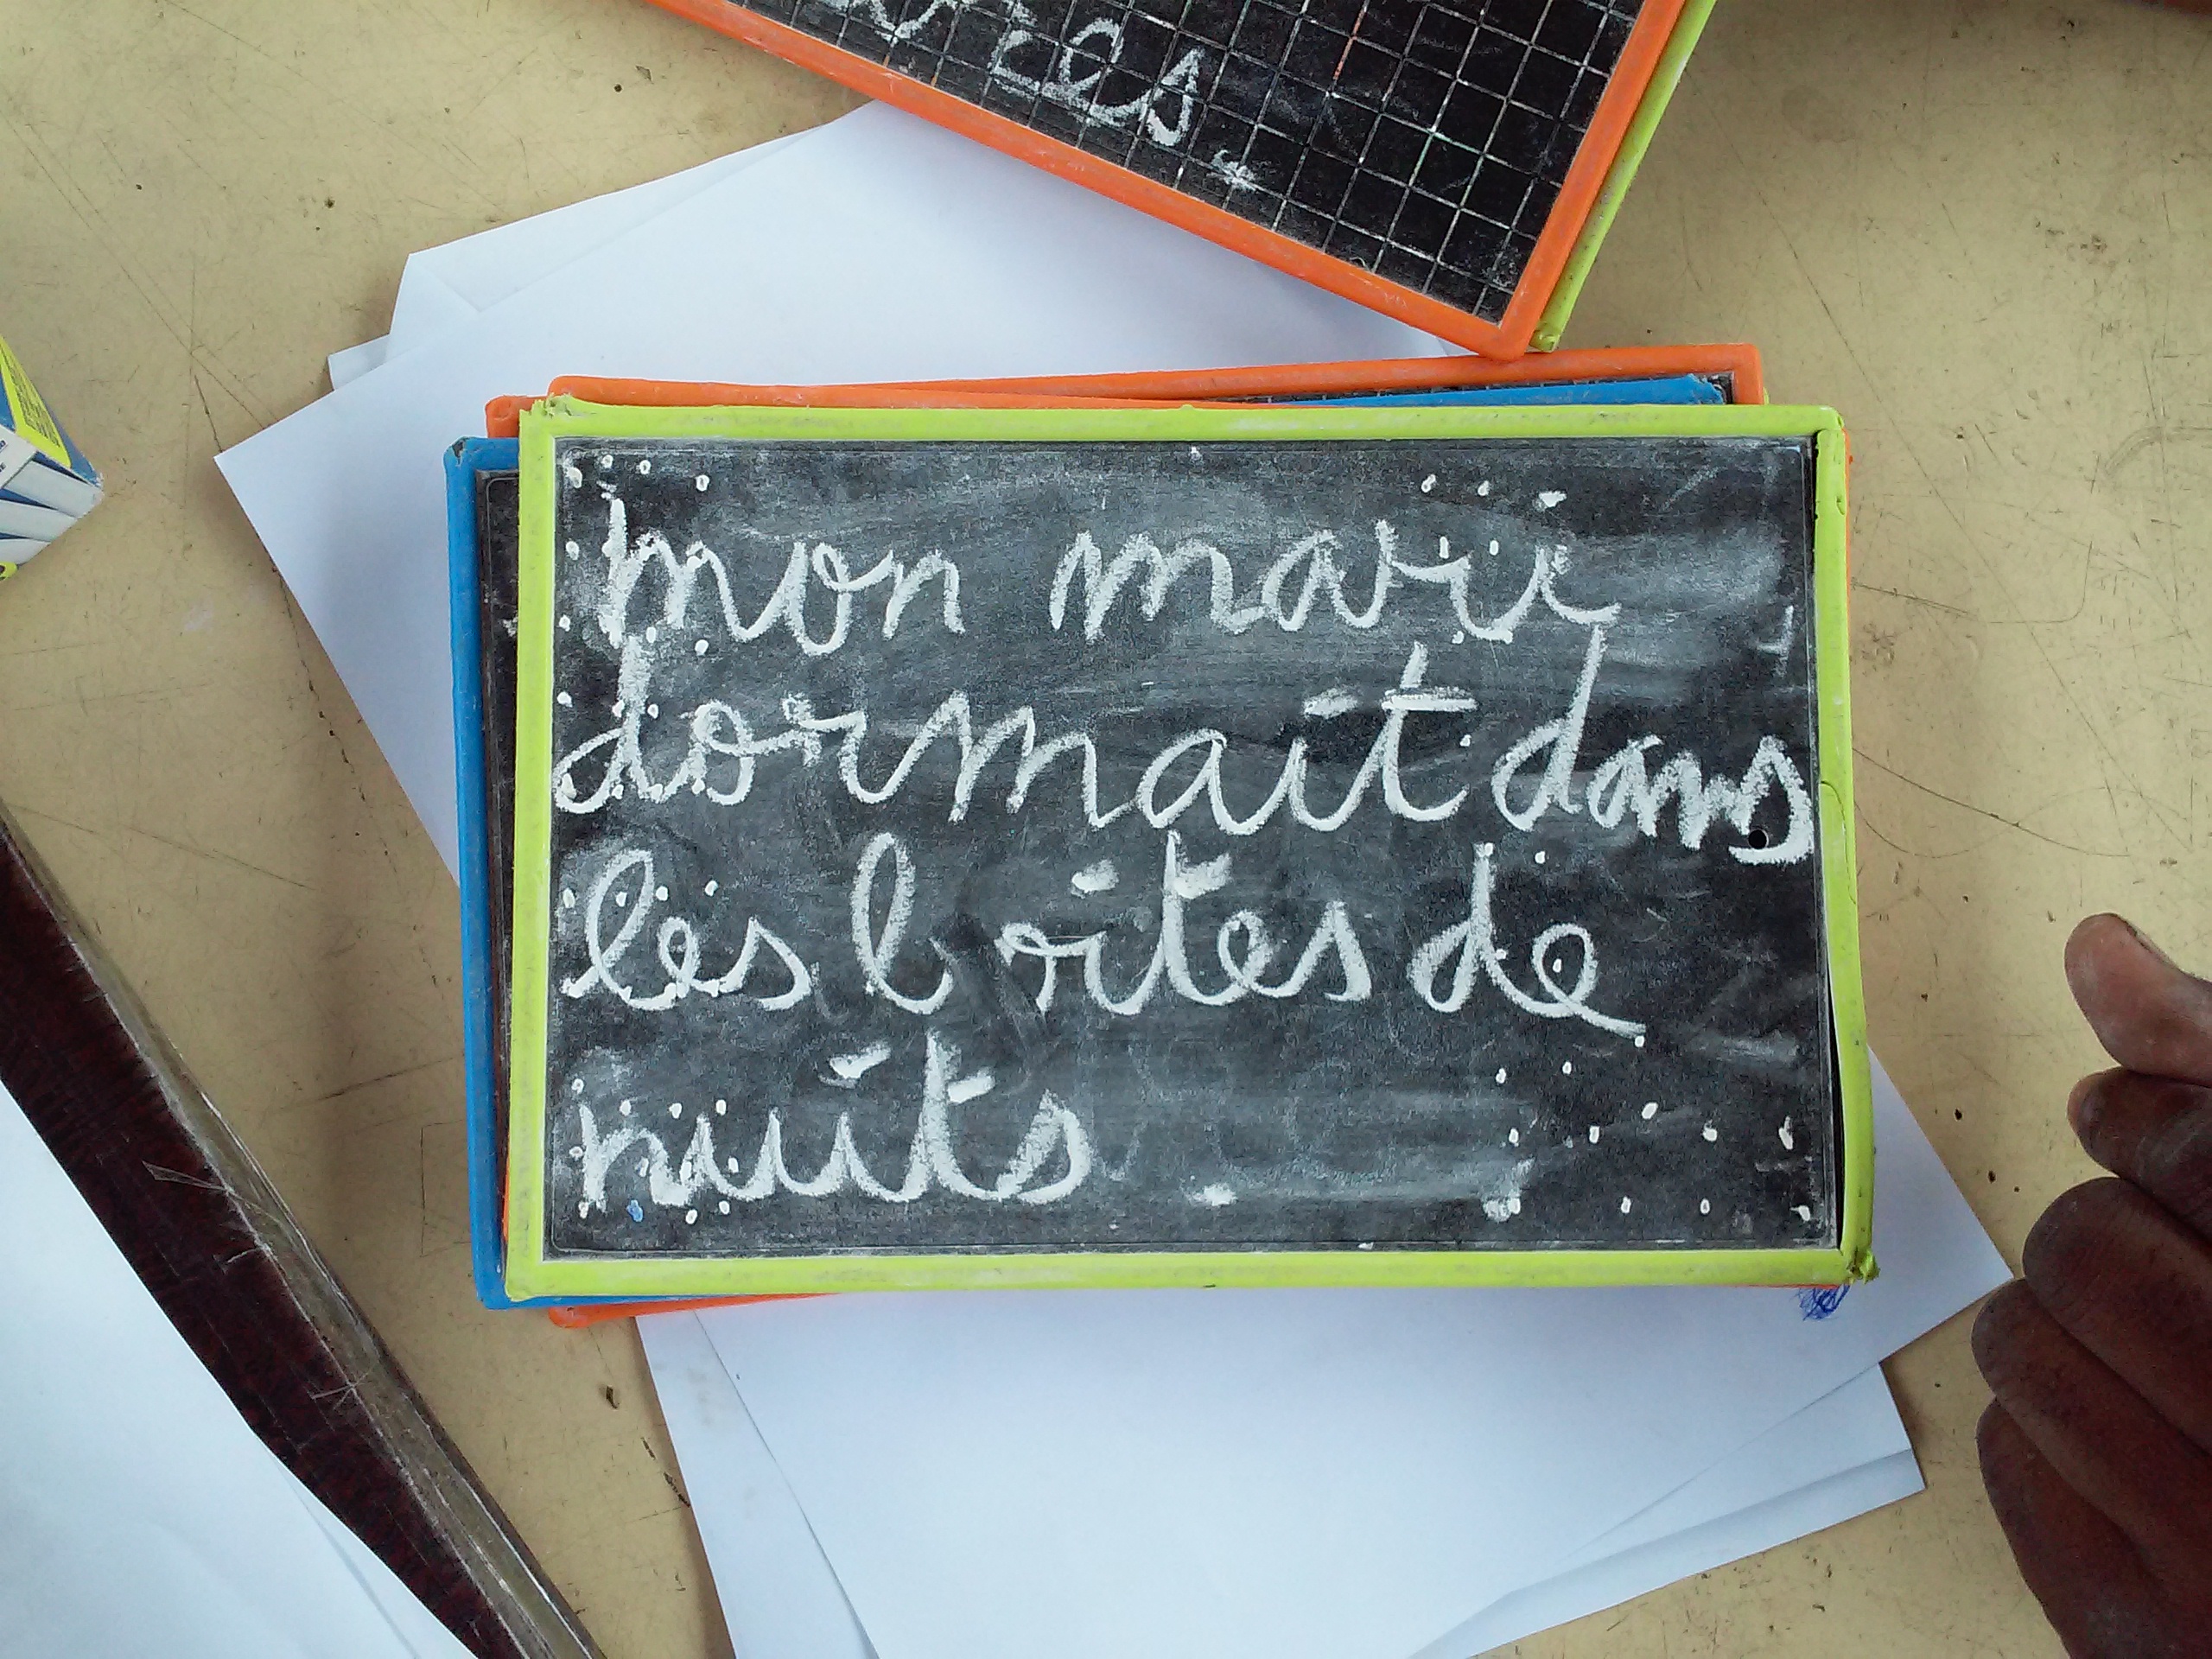 mon mari
dormait dans
les boites de
nuits.